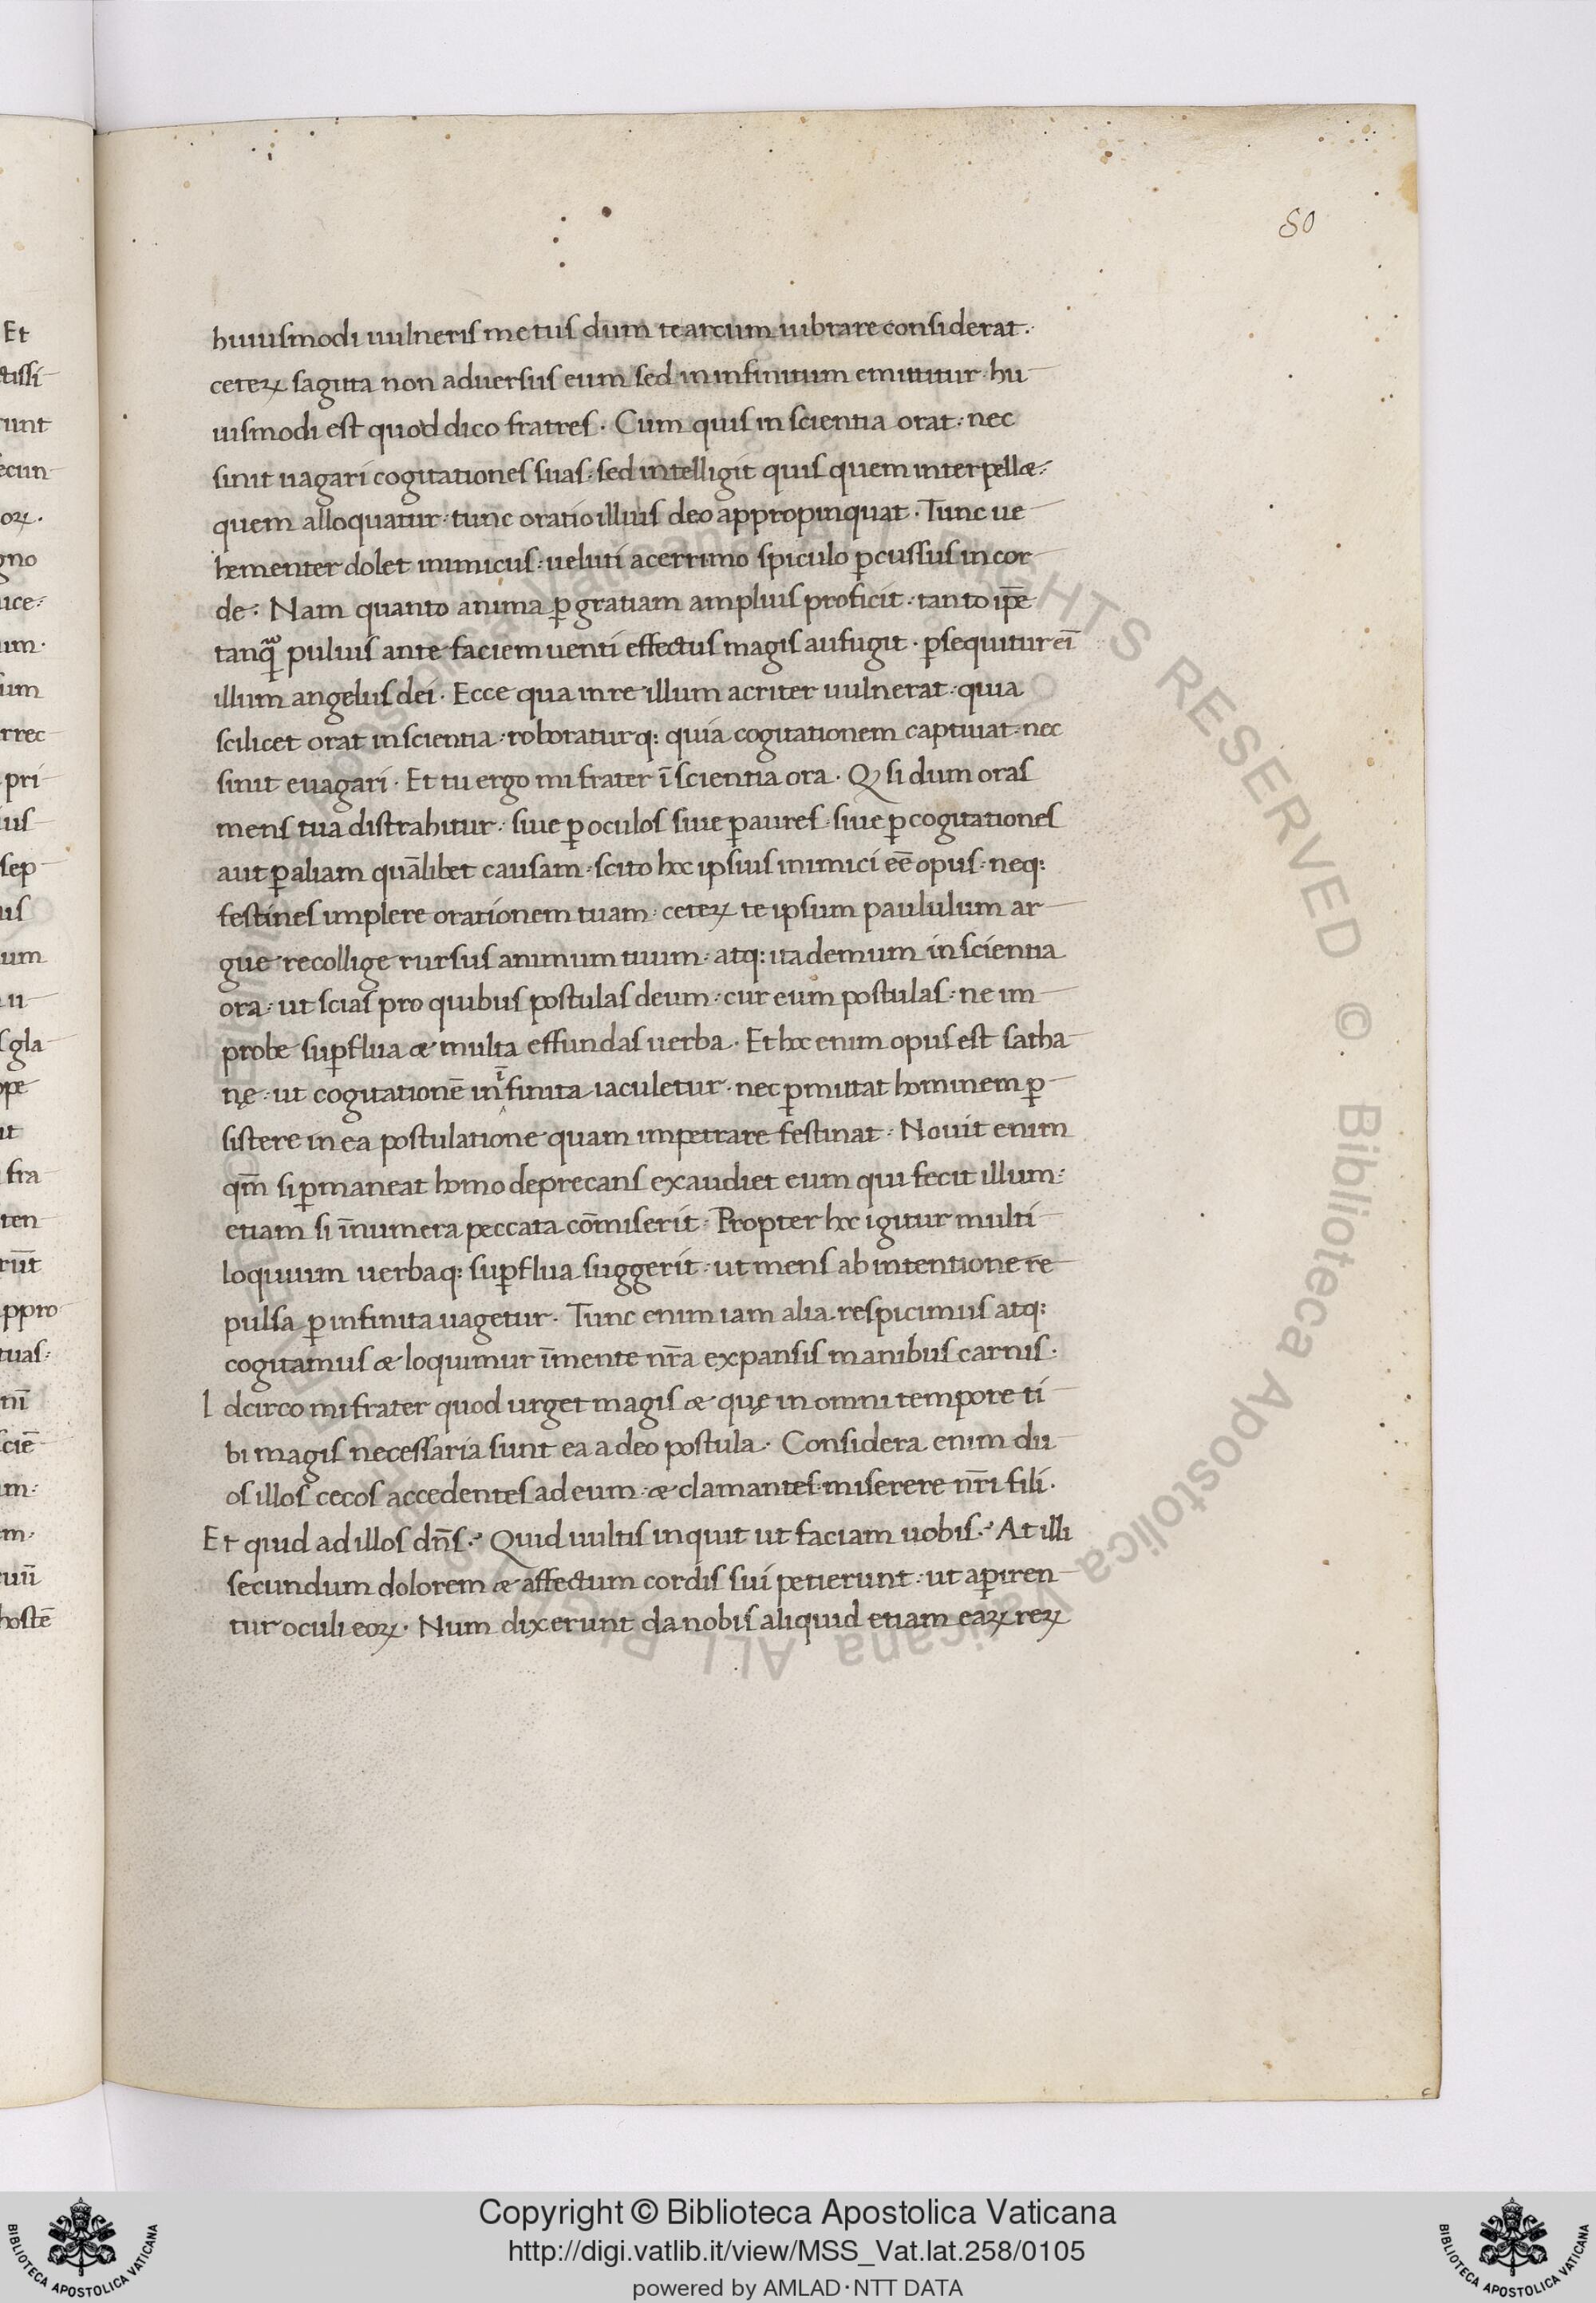 80
Et
huiusmodi uulneris metus dum te arcum uibrare considerat.
ceteꝝ sagitta non aduersus eum sed in infinitum emittitur · hu
iusmodi est quod dico fratres . Cum quis in scientia orat : nec
sinit uagari cogitationes suas : sed intelligit quis quem interpellæ :
quem alloquatur : tunc oratio illius deo appropinquat . Tunc ue
hementer dolet inimicus : ueluti acerrimo spiculo ꝑcussus in cor
de : Nam quanto anima ꝑ gratiam amplius proficit : tanto ip̄e
tanꝗᷓ puluis ante faciem uenti effectus magis aufugit . ꝑsequitur eī
illum angelus dei . Ecce qua in re illum acriter uulnerat : quia
scilicet orat in scientia : roboraturq: quia cogitationem captiuat : nec
sinit euagari . Et tu ergo mi frater ī scientia ora . Q, si dum oras
mens tua distrahitur : siue ꝑ oculos siue ꝑ aures : siue ꝑ cogitationes
aut ꝑ aliam quālibet causam : scito hoc ipsius inimici eē opus : neq:
festines implere orationem tuam : ceteꝝ te ipsum paululum ar
gue recollige rursus animum tuum : atq: ita demum in scientia
ora : ut scias pro quibus postulas deum : cur eum postulas : ne im
probe suꝑflua æ multa effundas uerba . Et hoc enim opus est satha
nę : ut cogitationē in ī finita iaculetur . nec ꝑmittat hominem ꝑ
sistere in ea postulatione quam impetrare festinat : Nouit enim
qm̄ si ꝑmaneat homo deprecans exaudiet eum qui fecit illum :
etiam si īnumera peccata cōmiserit : Propter hoc igitur multi
loquium uerbaq: suꝑflua suggerit : ut mens ab intentione re
pulsa ꝑ infinita uagetur . Tunc enim iam alia respicimus atq:
cogitamus æ loquimur ī mente nr̄a expansis manibus carnis .
Idcirco mi frater quod urget magis æ quę in omni tempore ti
bi magis necessaria sunt ea a deo postula : Considera enim du
os illos cecos accedentes ad eum : æ clamantes : miserere nr̄i fili .
Et quid ad illos dn̄s : Quid uultis inquit ut faciam uobis : At illi
secundum dolorem æ affectum cordis sui petierunt : ut aꝑiren
tur oculi eoꝝ . Num dixerunt da nobis aliquid etiam eaꝝ reꝝ
Copyright © Biblioteca Apostolica Vaticana
http://digi.vatlib.it/view/MSS_Vat.lat.258/0105
powered by AMLAD·NTT DATA
BIBLIOTECA APOSTOLICA VATICANA
BIBLIOTECA APOSTOLICA VATICANA